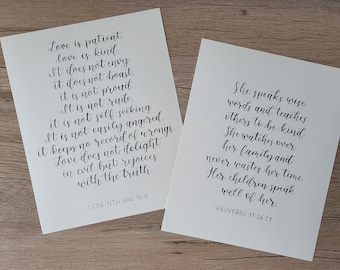 Love is patient,
love is kind.
It does not envy,
it does not boast,
it is not proud.
It is not rude,
it is not self-seeking,
It is not easily angered,
it keeps no record of wrongs.
Love does not delight
in evil but rejoices
with the truth.
1 CORINTHIANS 13:4
She speaks wise
words and teaches
others to be kind.
She watches over
her family and
never wastes her time.
Her children speak
well of her.
PROVERBS 31:26-28